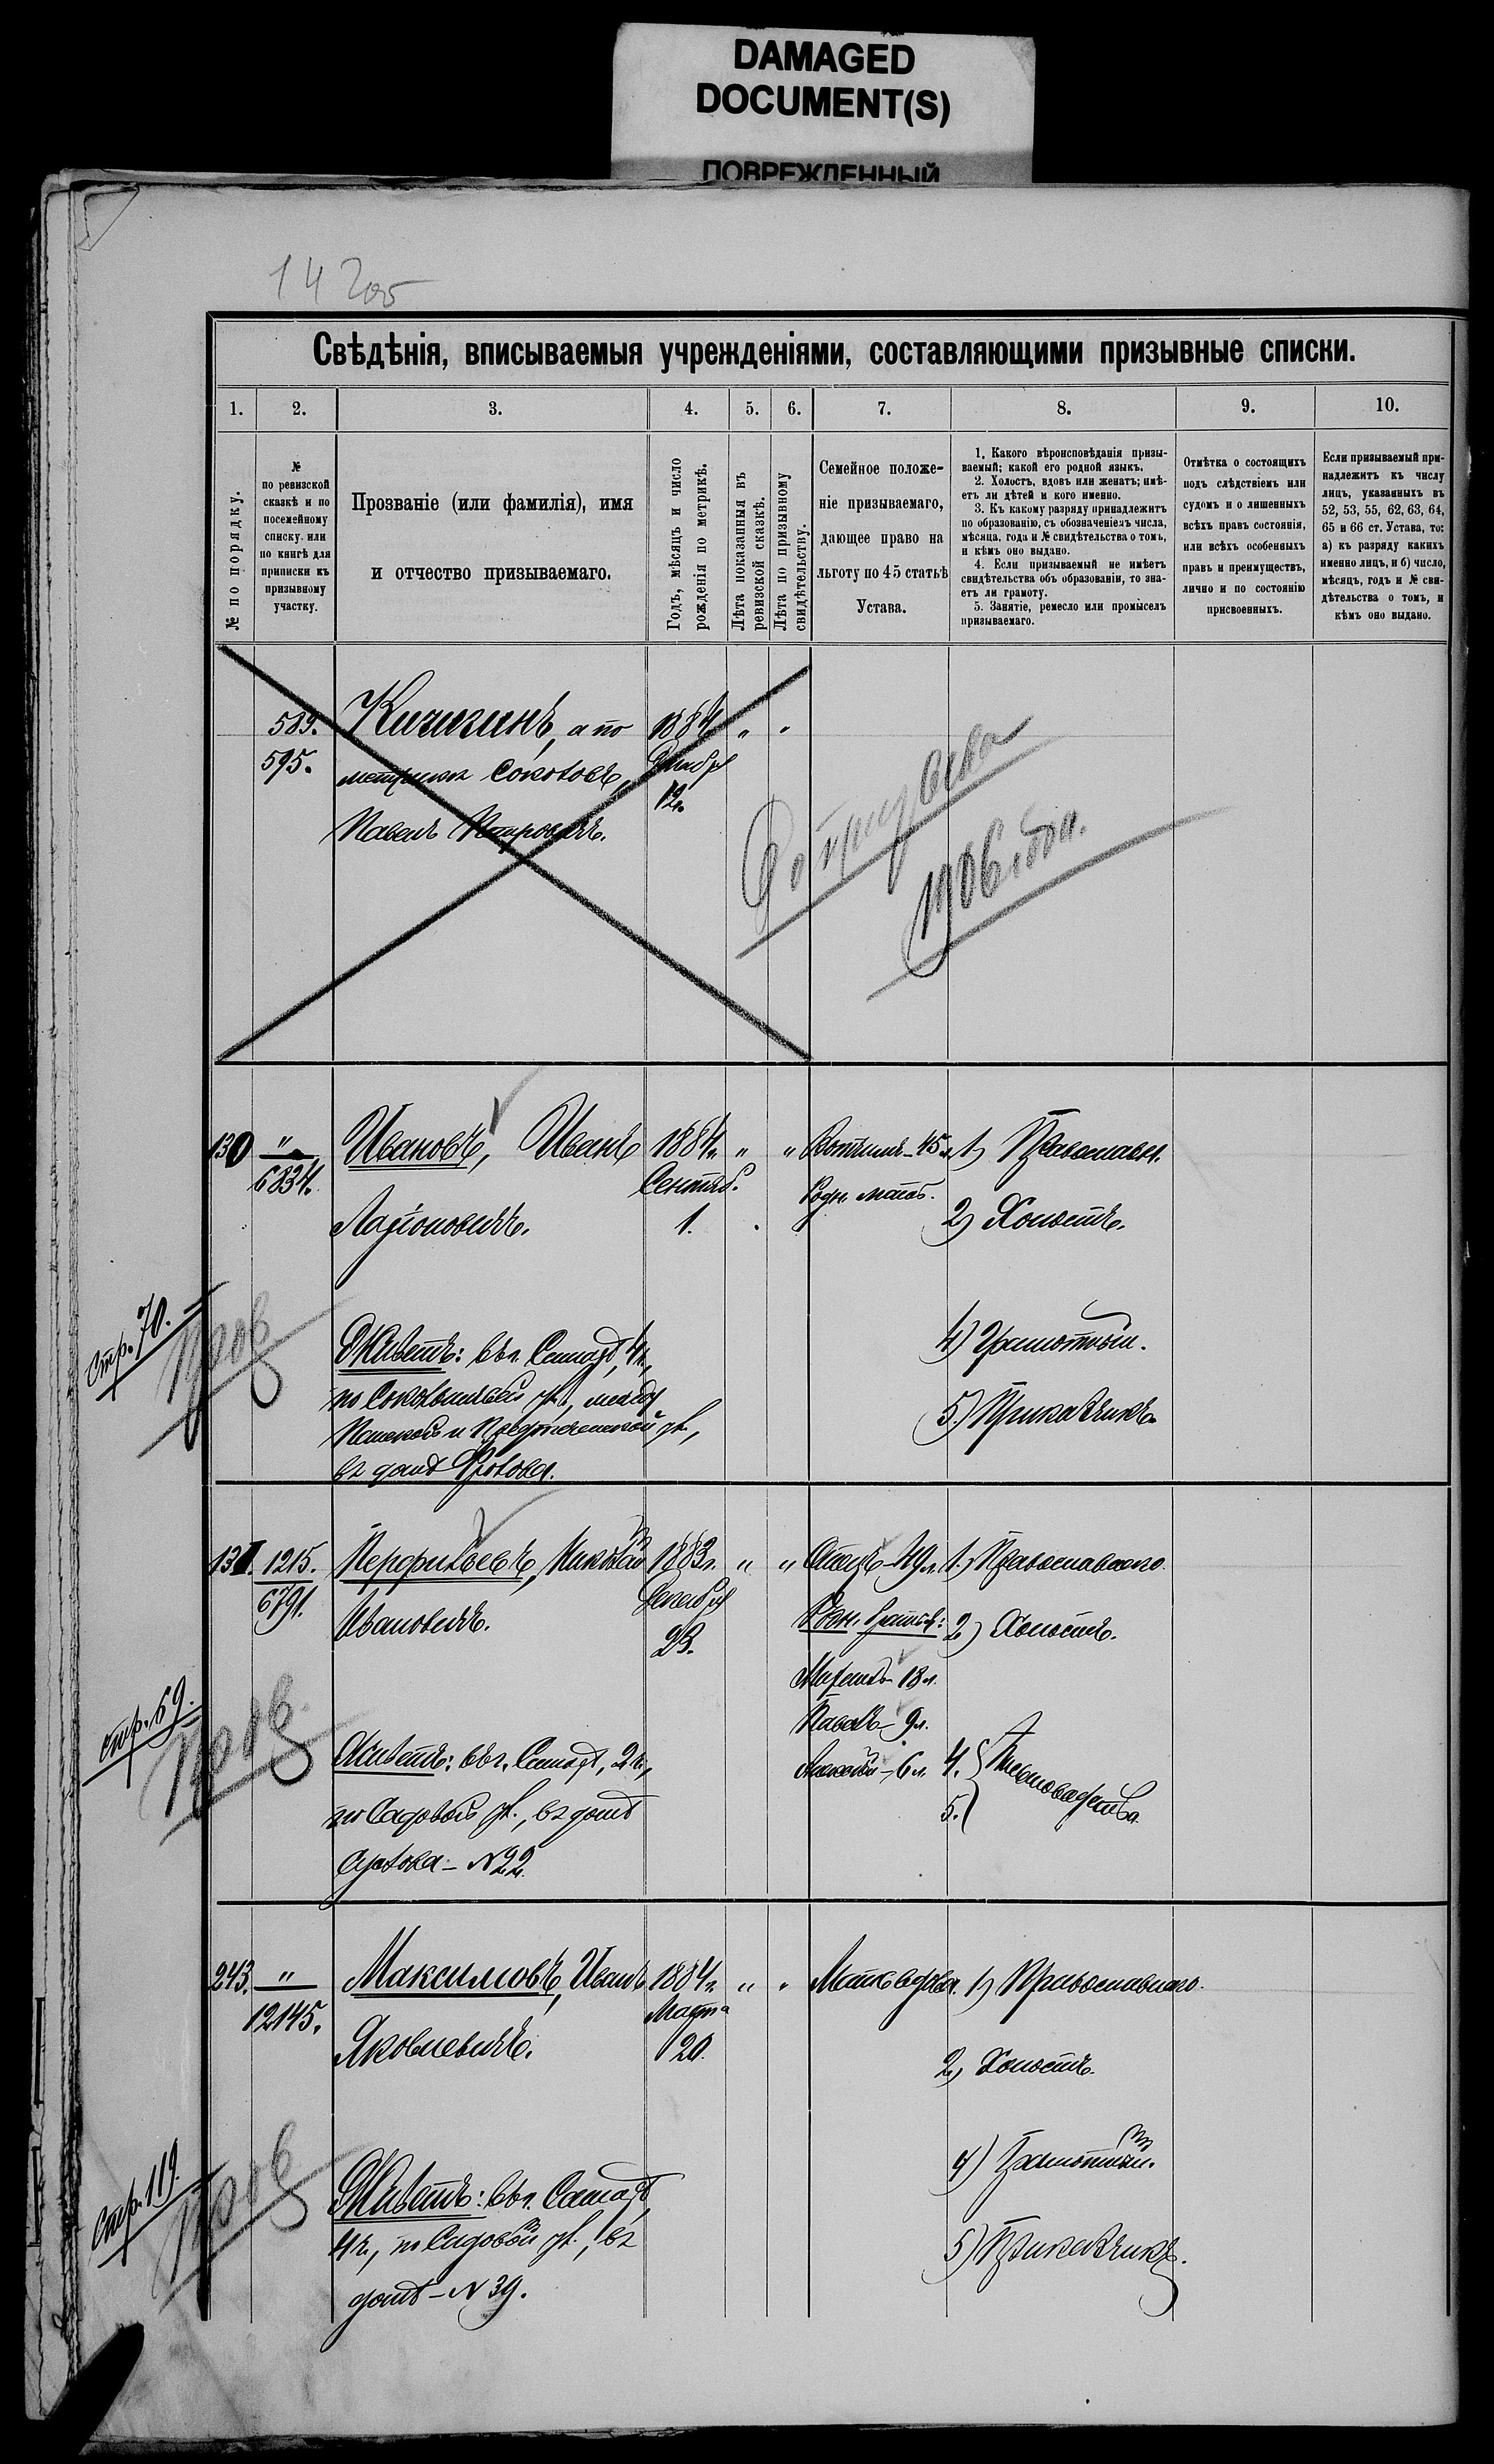 DAMAGED
DOCUMENT(S)
ПОВРЕЖДЕННЫЙ
14
Свѣдѣнія, вписываемыя учрежденіями, составляющими призывные списки.
1. 2. 3. 4. 5. 6. 7. 8. 9. 10.
№ по порядку.
№
по ревизской
сказкѣ и по
посемейному
списку. или
по книгѣ для
приписки къ
призывному
участку.
Прозваніе (или фамилія), имя
и отчество призываемаго.
Годъ, мѣсяцъ и число
рожденія по метрикѣ.
Лѣта показанныя въ
ревизской сказкѣ.
Лѣта по призывному
свидѣтельству.
Семейное положе-
ніе призываемаго,
дающее право на
льготу по 45 статьѣ
Устава.
1. Какого вѣроисповѣданія призы-
ваемый; какой его родной языкъ.
2. Холостъ, вдовъ или женатъ; имѣ-
етъ ли дѣтей и кого именно.
3. Къ какому разряду принадлежитъ
по образованію, съ обозначеніемъ числа,
мѣсяца, года и № свидѣтельства о томъ,
и кѣмъ оно выдано.
4. Если призываемый не имѣетъ
свидѣтельства объ образованіи, то зна-
етъ ли грамоту.
5. Занятіе, ремесло или промыселъ
призываемаго.
Отмѣтка о состоящихъ
подъ слѣдствіемъ или
судомъ и о лишенныхъ
всѣхъ правъ состоянія,
или всѣхъ особенныхъ
правъ и преимуществъ,
лично и по состоянію
присвоенныхъ.
Если призываемый при-
надлежитъ къ числу
лицъ, указанныхъ въ
52, 53, 55, 62, 63, 64,
65 и 66 ст. Устава, то:
а) къ разряду какихъ
именно лицъ, и б) число,
мѣсяцъ, годъ и № сви-
дѣтельства о томъ, и
кѣмъ оно выдано.
589.
595.
Кичигинъ, а по
метрикѣ Соколовъ,
Павелъ Петровичъ.
1884
Декабря
12.
" "
До призыва
1906 года.
130 "
6834.
Ивановъ, Иванъ
Ларіоновичъ.
Живетъ: въ г. Самарѣ, 4 ч.,
по Сокольничьей ул., между
и Предтеченской ул.,
въ домѣ Фролова.
1884 г.
Сентяб.
1.
" "
Вотчимъ - 45 л.
Родн. мать.
1) Православн.
2) Холостъ.
4) Грамотный.
5) Прикащикъ.
Стр. 70.
Пров
131. 1215.
6791.
Перфильевъ, Николай
Ивановичъ.
Живетъ: въ г. Самарѣ, 2 ч.,
по Садовой ул., въ домѣ
Орлова - N 22.
1883 г.
Декабря
23.
" "
Отецъ - 49 л.
Родн. братья:
18 л.
Павелъ - 9 л.
Алексѣй - 6 л.
1.) Православнаго.
2) Холостъ.
4.
5.
Стр. 69.
Пров
243. "
12145.
Максимовъ, Иванъ
Яковлевичъ.
Живетъ: въ г. Самарѣ,
4 ч., по Садовой ул., въ
домѣ - N 39.
1884 г.
Марта
20.
" "
Мать вдова.
1) Православнаго.
2) Холостъ.
4) Грамотный.
5) Прикащикъ.
Стр. 119.
Пров